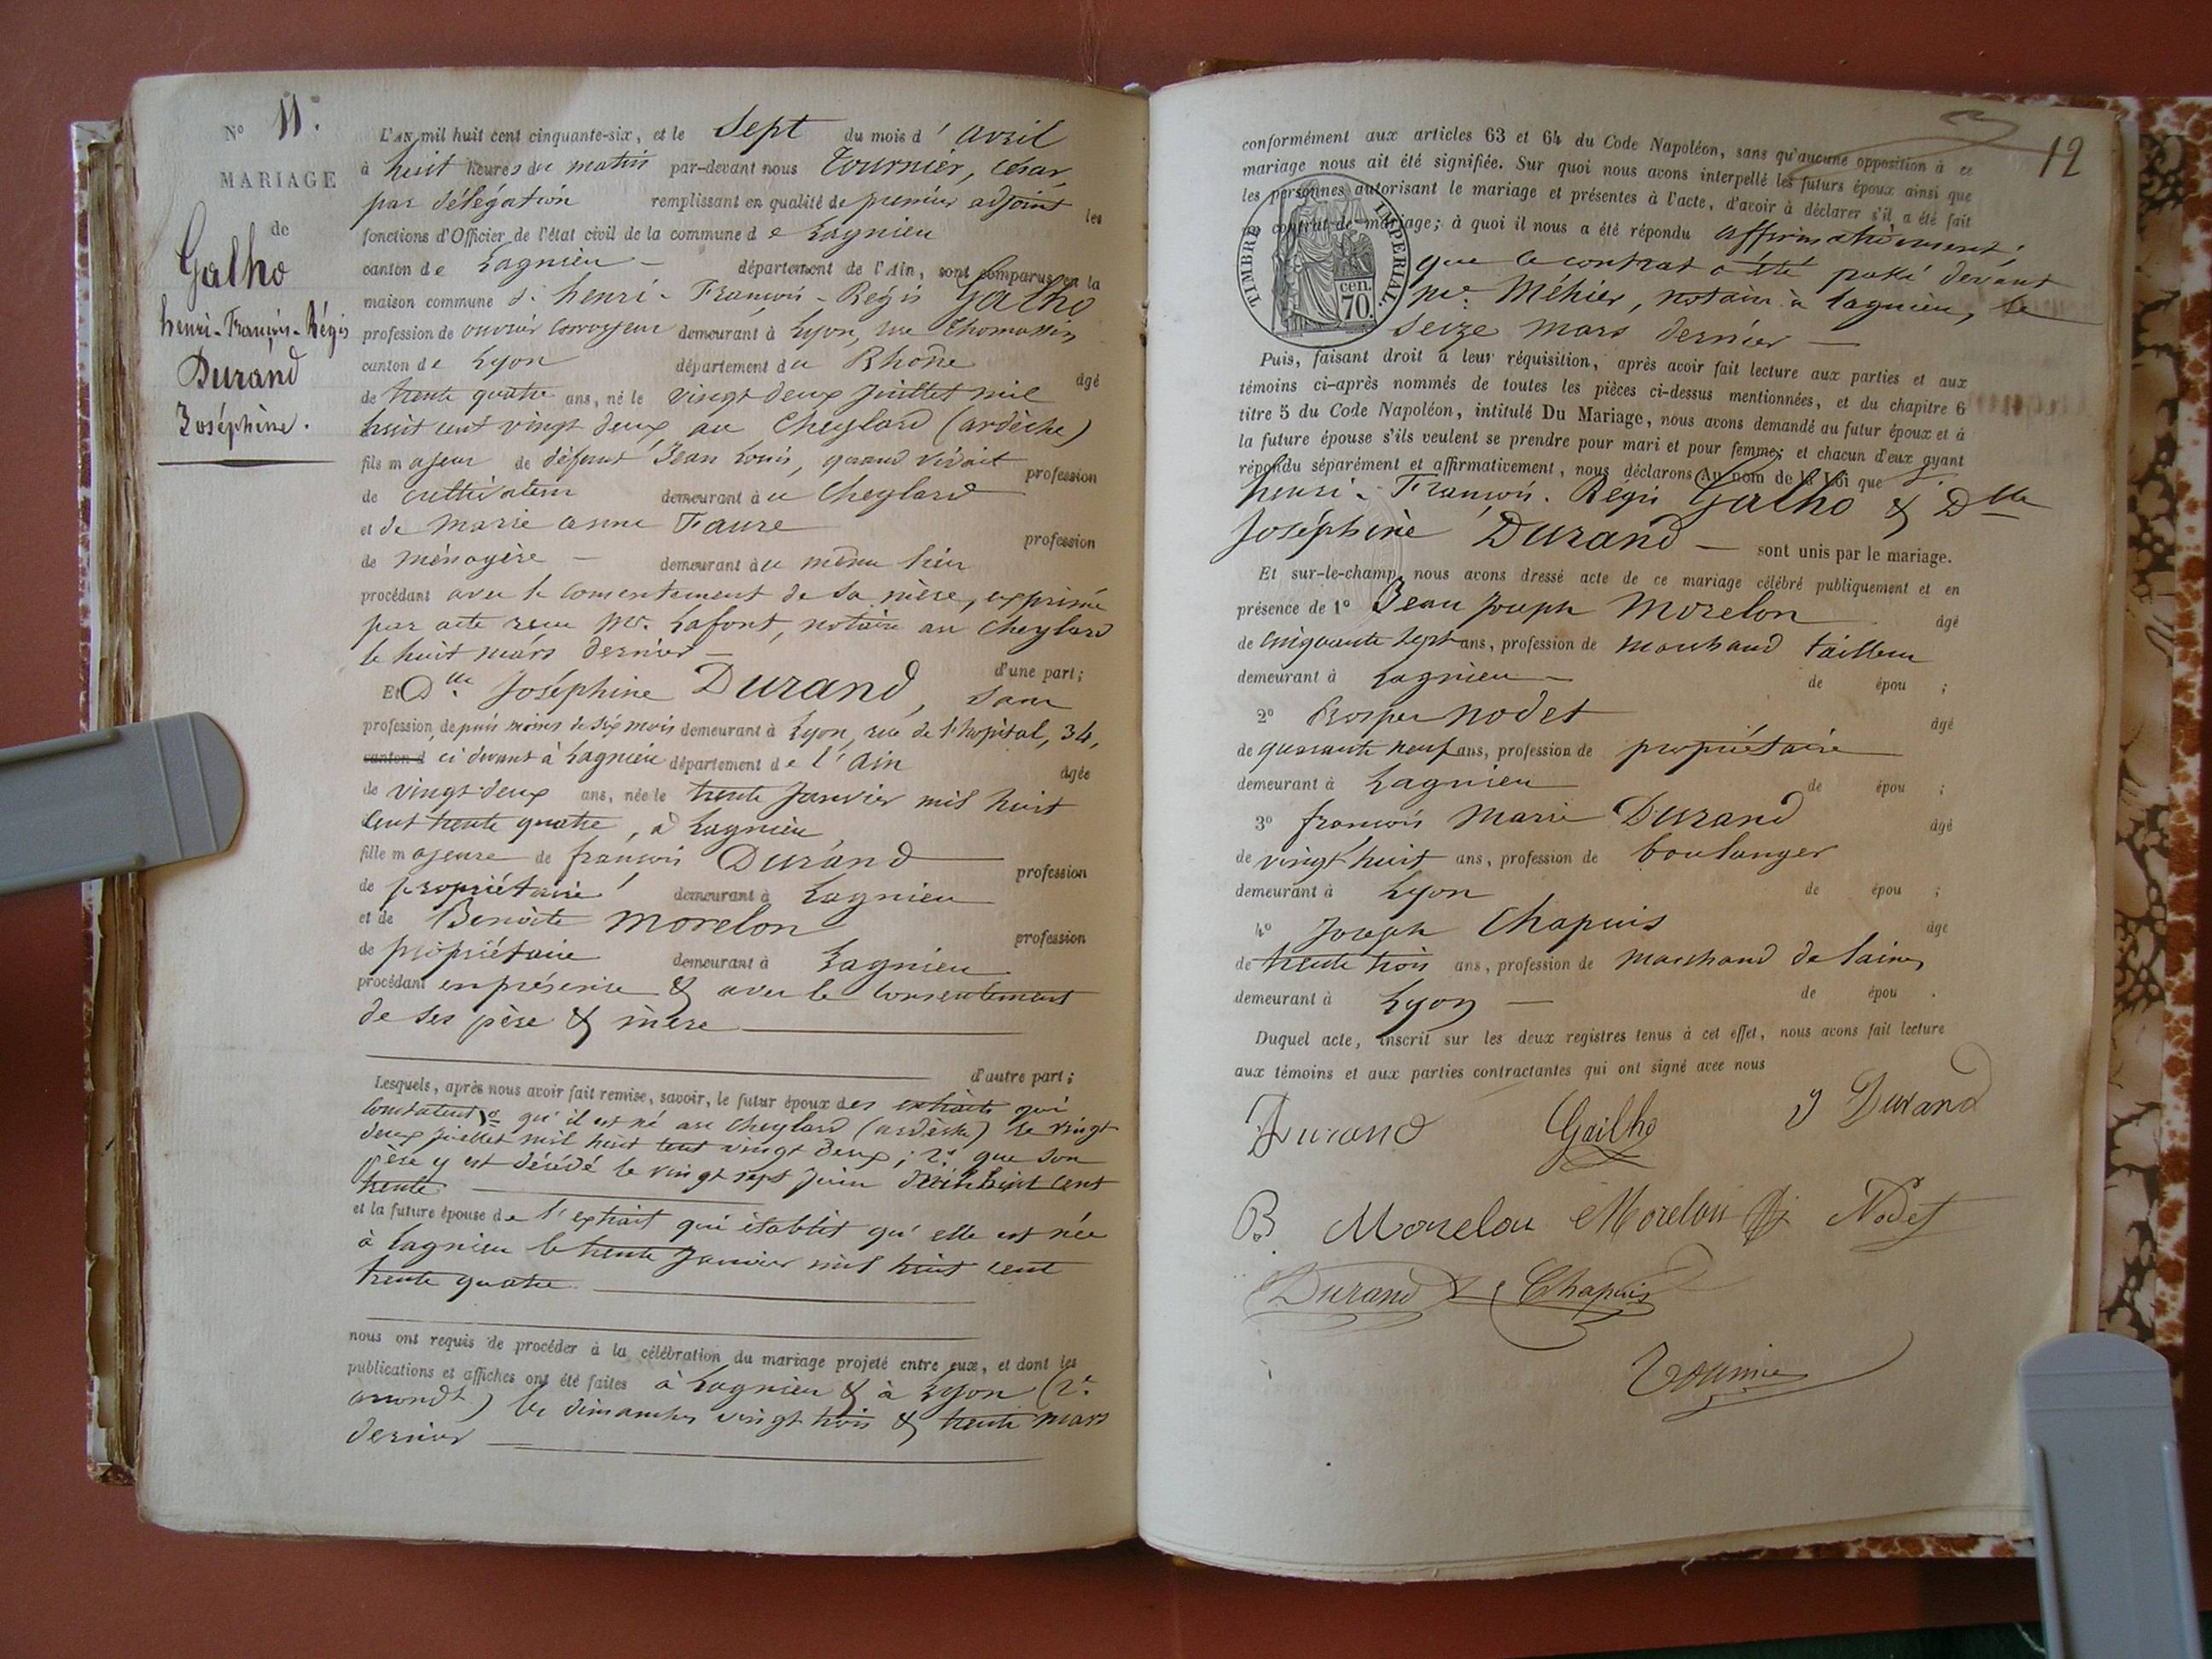 N° 11.
MARIAGE
de
Galho
henri-François-Régis
Durand
Joséphine.
L'AN mil huit cent cinquante-six, et le Sept du mois d'avril
à huit heures du matin par-devant nous Tournier, César,
par délégation remplissant en qualité de premier adjoint les
fonctions d'Officier de l'état civil de la commune de Lagnieu
canton de Lagnieu — département de l'Ain, sont comparus en la
maison commune S. henri-François-Régis Galho
profession de ouvrier corroyeur demeurant à Lyon, rue Thomassin
canton de Lyon département du Rhône âgé
de trente quatre ans, né le vingt deux juillet mil
huit cent vingt deux, au Cheylard (ardèche)
fils majeur de défunt Jean Louis, quand vivait profession
de cultivateur demeurant au Cheylard
et de Marie anne Faure profession
de ménagère — demeurant au même lieu
procédant avec le consentement de sa mère, exprimé
par acte reçu Me. Lafont, notaire au Cheylard
le huit mars dernier — d'une part;
Et Dlle. Joséphine Durand, sans
profession, depuis moins de six mois demeurant à Lyon, rue de l'hôpital, 34,
canton d ci devant à Lagnieu département de l'Ain âgée
de vingt-deux ans, née le trente Janvier mil huit
cent trente quatre, à Lagnieu
fille majeure de françois Durand profession
de propriétaire demeurant à Lagnieu
et de Benoite Morelon profession
de propriétaire demeurant à Lagnieu
procédant en présence & avec le consentement
de ses père & mère
d'autre part;
Lesquels, après nous avoir fait remise, savoir, le futur époux des extraits qui
constatent 1° qu'il est né au Cheylard (ardèche) le vingt
deux juillet mil huit cent vingt deux; 2° que son
père y est décédé le vingt sept juin mil huit cent
trente
et la future épouse de l'extrait qui établit qu'elle est née
à Lagnieu le trente Janvier mil huit cent
trente quatre
nous ont requis de procéder à la célébration du mariage projeté entre eux, et dont les
publications et affiches ont été faites à Lagnieu & à Lyon (2e.
arrondt) les dimanches vingt trois & trente mars
dernier
12
conformément aux articles 63 et 64 du Code Napoléon, sans qu'aucune opposition à ce
mariage nous ait été signifiée. Sur quoi nous avons interpellé les futurs époux ainsi que
les personnes autorisant le mariage et présentes à l'acte, d'avoir à déclarer s'il a été fait
un contrat de mariage; à quoi il nous a été répondu affirmativement;
que le contrat a été passé devant
Me. Méhier, notaire à Lagnieu, le
seize mars dernier —
TIMBRE IMPERIAL.
cen.
70.
Puis, faisant droit à leur réquisition, après avoir fait lecture aux parties et aux
témoins ci-après nommés de toutes les pièces ci-dessus mentionnées, et du chapitre 6
titre 5 du Code Napoléon, intitulé Du Mariage, nous avons demandé au futur époux et à
la future épouse s'ils veulent se prendre pour mari et pour femme; et chacun d'eux ayant
répondu séparément et affirmativement, nous déclarons Au nom de la Loi que S.
henri-François-Régis Galho & Dlle
Joséphine Durand — sont unis par le mariage.
Et sur-le-champ, nous avons dressé acte de ce mariage célébré publiquement et en
présence de 1° Jean Joseph Morelon âgé
de cinquante sept ans, profession de marchand tailleur
demeurant à Lagnieu — de épou ;
2° Prosper Nodet âgé
de quarante neuf ans, profession de propriétaire
demeurant à Lagnieu de épou ;
3° françois Marie Durand âgé
de vingt huit ans, profession de boulanger
demeurant à Lyon de épou ;
4° Joseph Chapuis âgé
de trente trois ans, profession de marchand de laines
demeurant à Lyon — de épou .
Duquel acte, inscrit sur les deux registres tenus à cet effet, nous avons fait lecture
aux témoins et aux parties contractantes qui ont signé avec nous
Durand Gailho J Durand
B Morelon Morelon Nodet
Durand Chapuis
Tournier